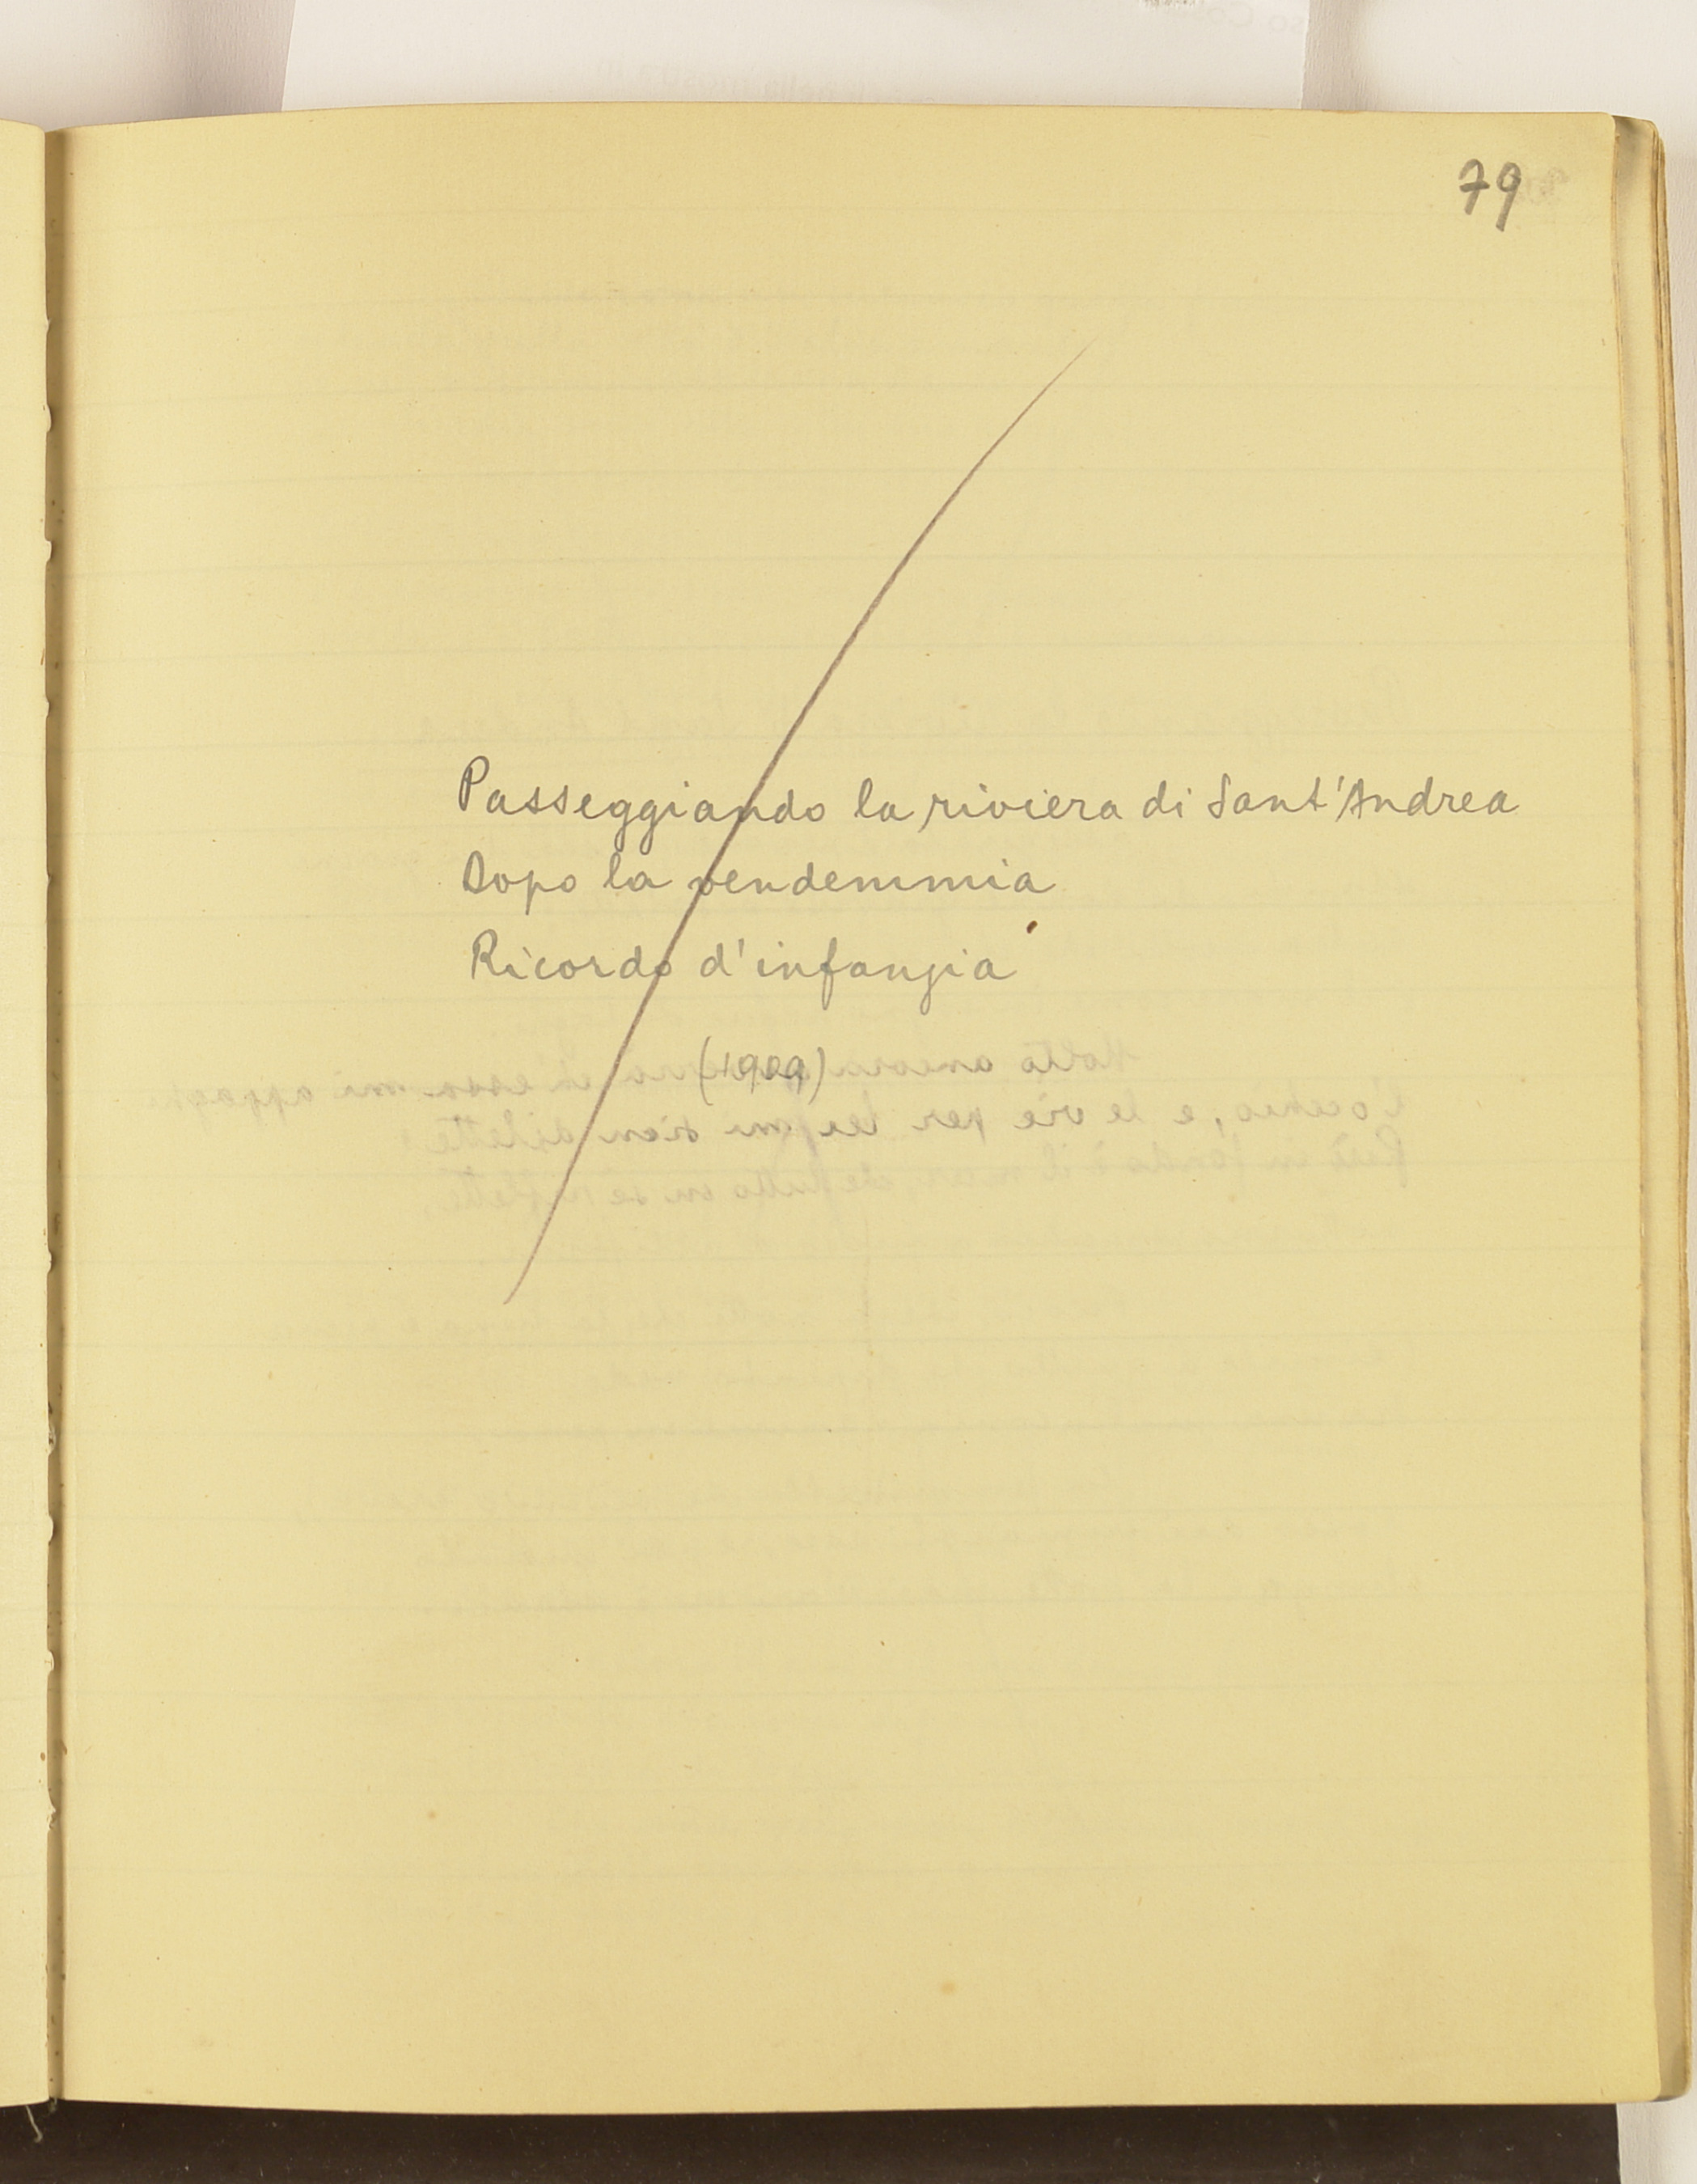 79
Passeggiando la riviera di Sant'Andrea
Dopo la vendemmia
Ricordo d'infanzia
(1909)